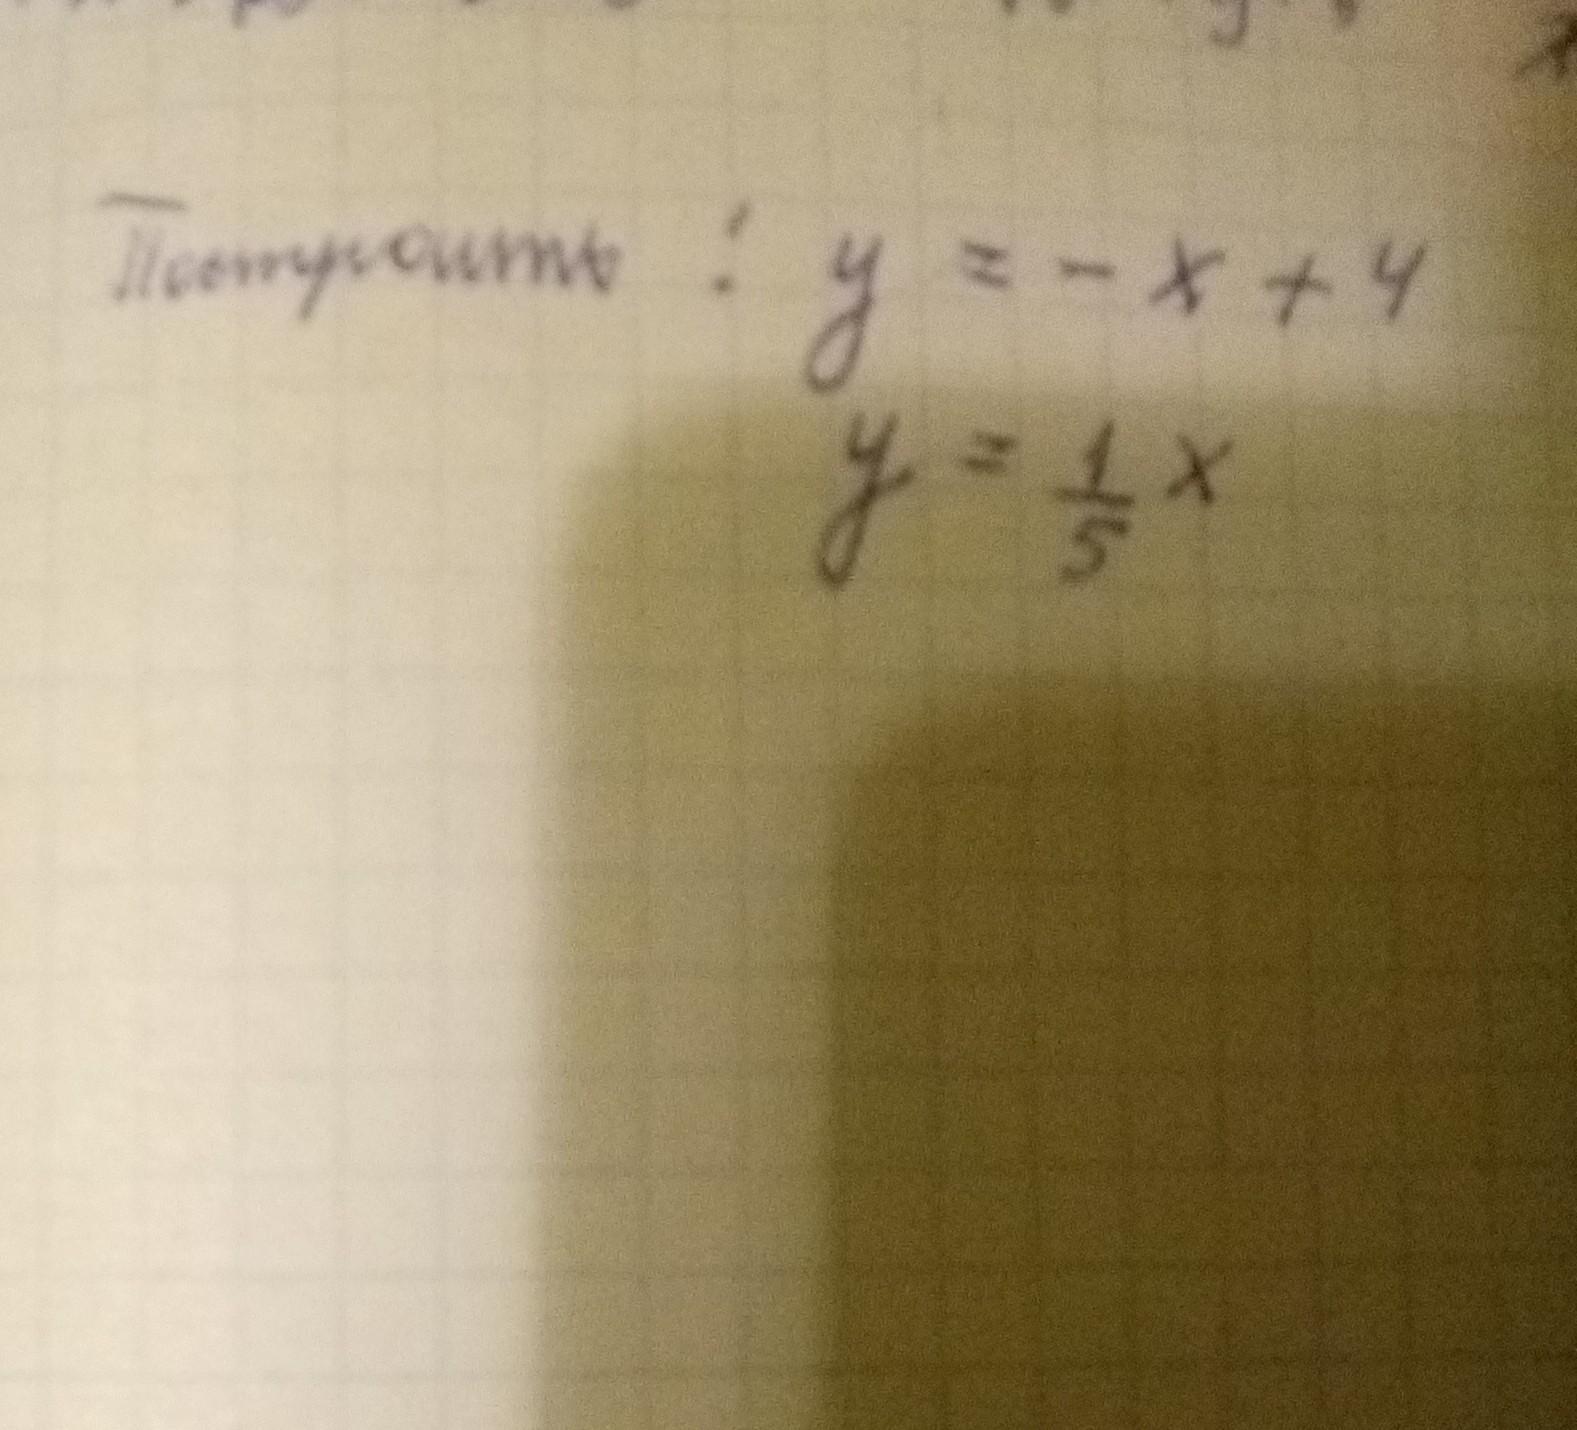 Построить : y = - x + 4
y = 1/5 x